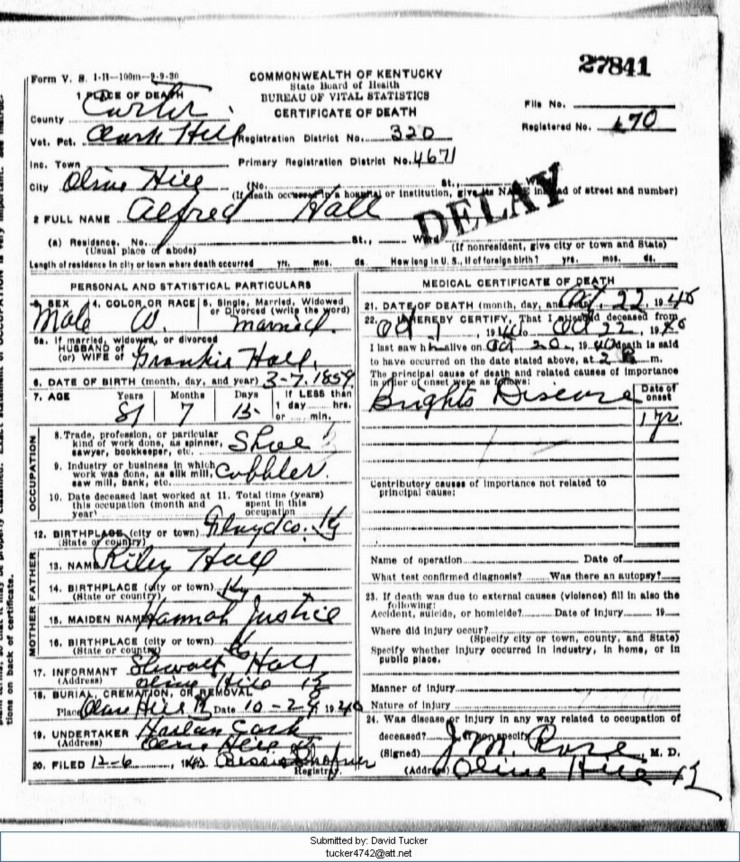 27841
Form V. S. 1-11-100m-9-9-30
COMMONWEALTH OF KENTUCKY
State Board of Health
BUREAU OF VITAL STATISTICS
CERTIFICATE OF DEATH
File No.
Registered No. 170
1 PLACE OF DEATH
County Carter
Vot. Pct. Clark Hill Registration District No. 320
Inc. Town Primary Registration District No. 4671
City Olive Hill (No. St., Ward)
(If death occurred in a hospital or institution, give its NAME instead of street and number)
2 FULL NAME Alfred Hall
DELAY
(a) Residence. No. St., Ward
(Usual place of abode) (If nonresident, give city or town and State)
Length of residence in city or town where death occurred yrs. mos. ds. How long in U. S., if of foreign birth? yrs. mos. ds.
PERSONAL AND STATISTICAL PARTICULARS
3. SEX 4. COLOR OR RACE 5. Single, Married, Widowed or Divorced (write the word)
Male W. married
5a. If married, widowed, or divorced
HUSBAND of
(or) WIFE of Frankie Hall
6. DATE OF BIRTH (month, day, and year) 3-7-1859
7. AGE Years Months Days If LESS than
1 day hrs.
or min.
81 7 15
OCCUPATION
8. Trade, profession, or particular kind of work done, as spinner, sawyer, bookkeeper, etc. Shoe
9. Industry or business in which work was done, as silk mill, saw mill, bank, etc. Cobbler
10. Date deceased last worked at this occupation (month and year) 11. Total time (years) spent in this occupation
12. BIRTHPLACE (city or town) Floyd Co. Ky
(State or country)
FATHER
13. NAME Riley Hall
14. BIRTHPLACE (city or town) Ky
(State or country)
MOTHER
15. MAIDEN NAME Hannah Justice
16. BIRTHPLACE (city or town) Ky
(State or country)
17. INFORMANT Hall
(Address) Olive Hill Ky
18. BURIAL, CREMATION, OR REMOVAL
Place Olive Hill Ky Date 10-24 1940
19. UNDERTAKER Harlan
(Address) Olive Hill Ky
20. FILED 12-6, 19 Bessie
Registrar.
MEDICAL CERTIFICATE OF DEATH
21. DATE OF DEATH (month, day, and year) Oct 22, 1940
22. I HEREBY CERTIFY, That I attended deceased from
Oct 1, 1940 to Oct 22, 1940
I last saw h alive on Oct 20, 1940 death is said
to have occurred on the date stated above, at 2 m.
The principal cause of death and related causes of importance
in order of onset were as follows: Date of onset
Brights Disease
1 yr.
Contributory causes of importance not related to
principal cause:
Name of operation Date of
What test confirmed diagnosis? Was there an autopsy?
23. If death was due to external causes (violence) fill in also the
following:
Accident, suicide, or homicide? Date of injury 19
Where did injury occur?
(Specify city or town, county, and State)
Specify whether injury occurred in industry, in home, or in
public place.
Manner of injury
Nature of injury
24. Was disease or injury in any way related to occupation of
deceased? If so, specify
(Signed) J. M. Rose M. D.
(Address) Olive Hill Ky
tions on back of certificate.
Submitted by: David Tucker
tucker4742@att.net